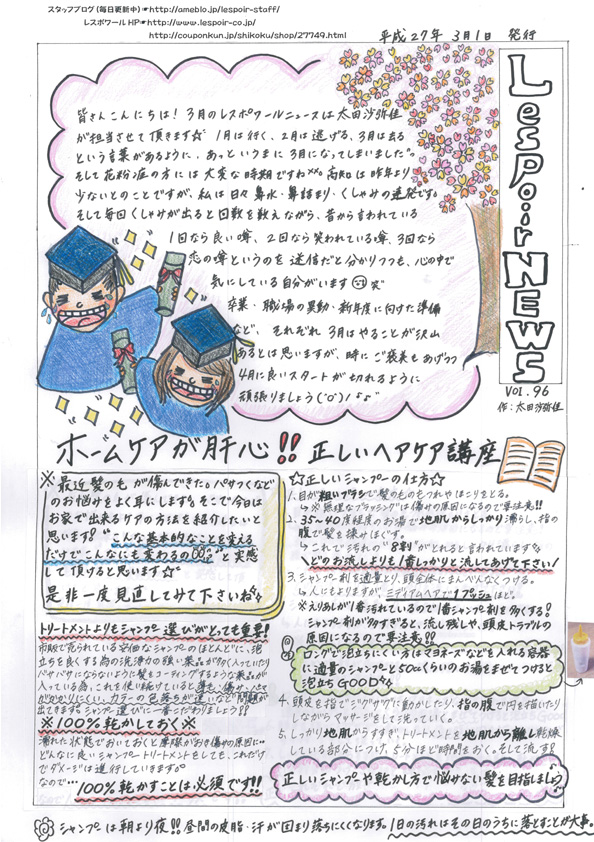 スタッフブログ(毎日更新中)☛http://ameblo.jp/lespoir-staff/
レスポワールHP☛http://www.lespoir-co.jp/
http://couponkun.jp/shikoku/shop/27749.html
平成27年 3月1日 発行
Lespoir NEWS
VOl.96
作:太田沙弥佳
皆さんこんにちは! 3月のレスポワールニュースは太田沙弥佳
が担当させて頂きます☆ 1月は行く、2月は逃げる、3月は去る
という言葉があるように、あっというまに3月になってしまいました
そして花粉症の方には大変な時期ですね××。高知は昨年より
少ないとのことですが、私は日々鼻水・鼻詰まり・くしゃみの連発です。
そして毎回くしゃみが出ると回数を数えながら、昔から言われている
1回なら良い噂、2回なら笑われている噂、3回なら
恋の噂というのを迷信だと分かりつつも、心の中で
気にしている自分がいます 笑
卒業・職場の異動・新年度に向けた準備
など、それぞれ3月はやることが沢山
あるとは思いますが、時にご褒美もあげつつ
4月に良いスタートが切れるように
頑張りましょう(^o^)/
ホームケアが肝心!! 正しいヘアケア講座
※最近髪の毛が傷んできた。パサつくなど
のお悩みをよく耳にします。そこで今日は
お家で出来るケアの方法を紹介したいと
思います! "こんな基本的なことを変える
だけでこんなにも変わるの"と実感
して頂けると思います☆
是非一度見直してみて下さいね
トリートメントよりもシャンプー選びがとっても重要!
市販で売られている安価なシャンプーのほとんどに、泡
立ちを良くする為の洗浄力の強い薬品が
バサバサにならないように髪をコーティングするような薬品が
入っている為、これを使い続けていると
カラーの色落ちが速いなど問題が
出てきます。シャンプー選びに一番こだわりましょう!!
※100%乾かしておく※
濡れた状態でおいておくと摩擦がおき傷みの原因に…
どんなに良いシャンプー、トリートメントをしても、これだけ
でダメージは進行していきます。
なので…100%乾かすことは必須です!!
☆正しいシャンプーの仕方☆
1. 目が粗いブラシで髪の毛のもつれやほこりをとる。
↳※無理なブラッシングは傷みの原因になるので要注意!!
2. 35~40度程度のお湯で地肌からしっかり濡らし、指の
腹で髪を揉みほぐす。
↳これで汚れの"8割"がとれると言われています
\どの お流しよりも1番しっかりと流してあげて下さい/
3. シャンプー剤を適量とり、頭全体にまんべんなくつける。
↳人にもよりますが、ミディアムヘアで1プッシュほど。
※えりあしが1番汚れているので1番シャンプー剤を多くする!
シャンプー剤が多すぎると、流し残しや、頭皮トラブルの
原因になるので要注意!!
ロングで泡立ちにくい方はマヨネーズなどを入れる容器
に適量のシャンプーと50ccくらいのお湯をまぜてつけると
泡立ちGOOD
4. 頭皮を指でジグザグに動かしたり、指の腹で円を描いたり
しながらマッサージをして洗っていく。
5. しっかり地肌からすすぎ、トリートメントを地肌から離し乾燥
している部分につけ、5分ほど時間をおく。そして流す!
正しいシャンプーや乾かし方で悩みない髪を目指しましょう
シャンプーは朝より夜!! 昼間の皮脂・汗が固まり落ちにくくなります。1日の汚れはその日のうちに落とすことが大事。